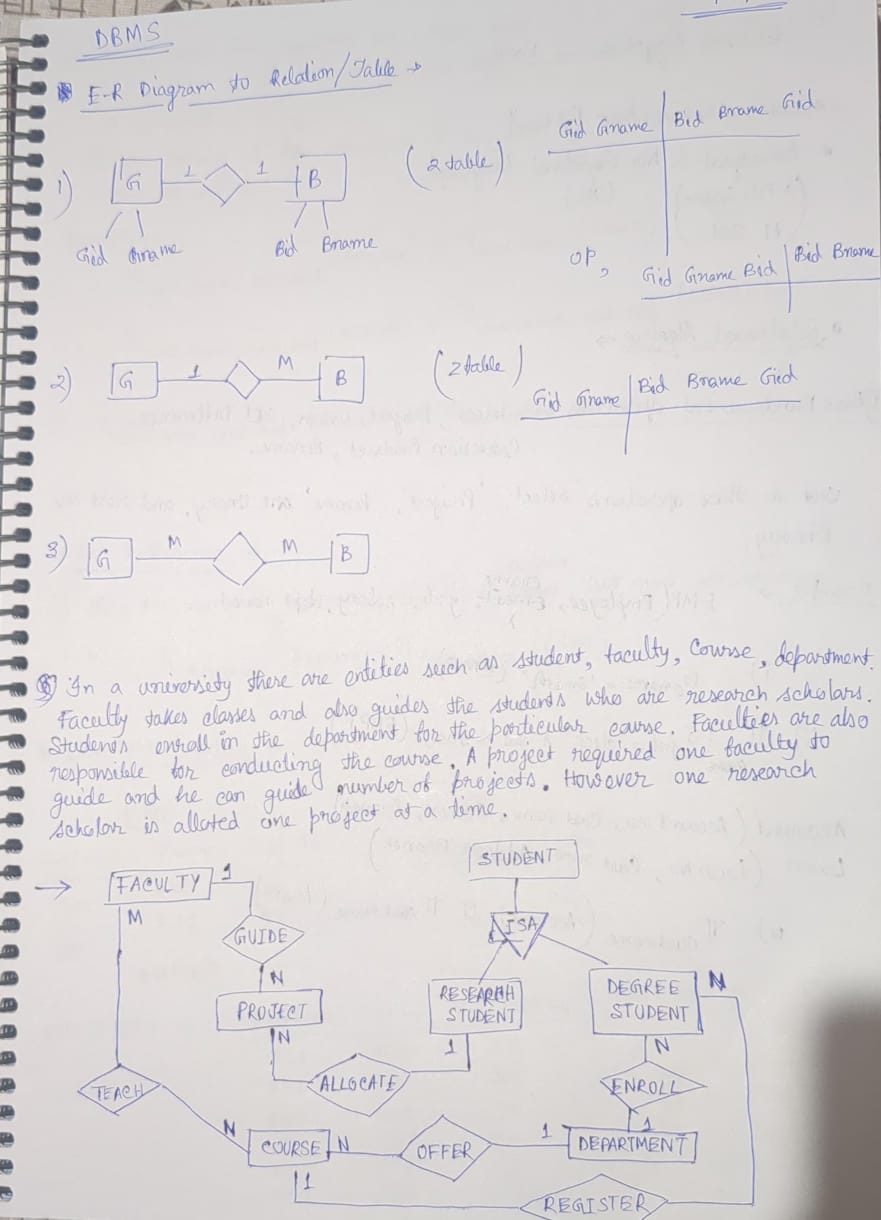 DBMS
E-R Diagram to Relation/Table →
1) G 1 1 B (2 table)
Gid Gname Bid Bname
Gid Gname Bid Bname Gid
or,
Gid Gname Bid Bid Bname
2) G 1 M B (2 table)
Gid Gname Bid Bname Gid
3) G M M B
In a university there are entities such as student, faculty, Course, department.
Faculty takes classes and also guides the students who are research scholars.
Students enroll in the department for the particular course. Faculties are also
responsible for conducting the course. A project required one faculty to
guide and he can guide number of projects. However one research
scholar is alloted one project at a time.
→ FACULTY 1
STUDENT
M
GUIDE
ISA
N
PROJECT
RESEARCH
STUDENT
DEGREE
STUDENT
N
N
1
N
TEACH
ALLOCATE
ENROLL
1
N
COURSE N OFFER 1 DEPARTMENT
1
REGISTER